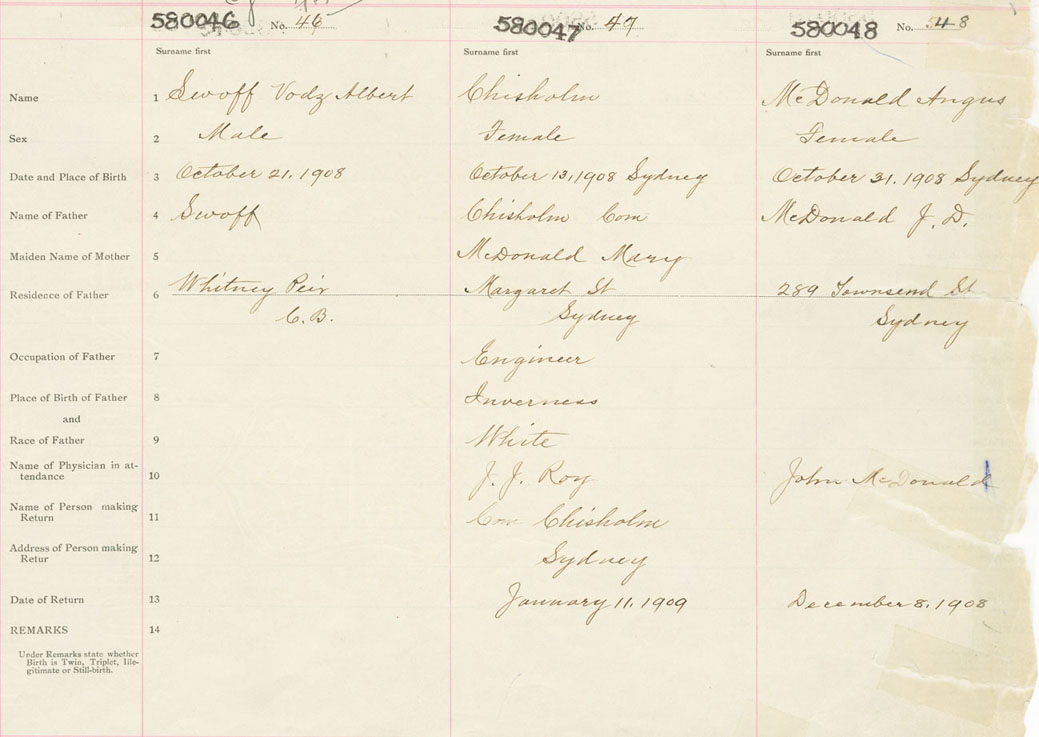 580046 No. 46
580047 No. 47
580048 No. 48
Surname first
Surname first
Surname first
Name 1 Swoff Vodz Albert Chisholm McDonald Angus
Sex 2 Male Female Female
Date and Place of Birth 3 October 21, 1908 October 13, 1908 Sydney October 31, 1908 Sydney
Name of Father 4 Swoff Chisholm Con McDonald J. D.
Maiden Name of Mother 5 McDonald Mary
Residence of Father 6 Whitney Peir Margaret St 289 Townsend St
C.B. Sydney Sydney
Occupation of Father 7 Engineer
Place of Birth of Father 8 Inverness
and
Race of Father 9 White
Name of Physician in at-
tendance 10 J. J. Roy John McDonald
Name of Person making
Return 11 Con Chisholm
Address of Person making
Retur 12 Sydney
Date of Return 13 January 11, 1909 December 8, 1908
REMARKS 14
Under Remarks state whether
Birth is Twin, Triplet, Ille-
gitimate or Still-birth.